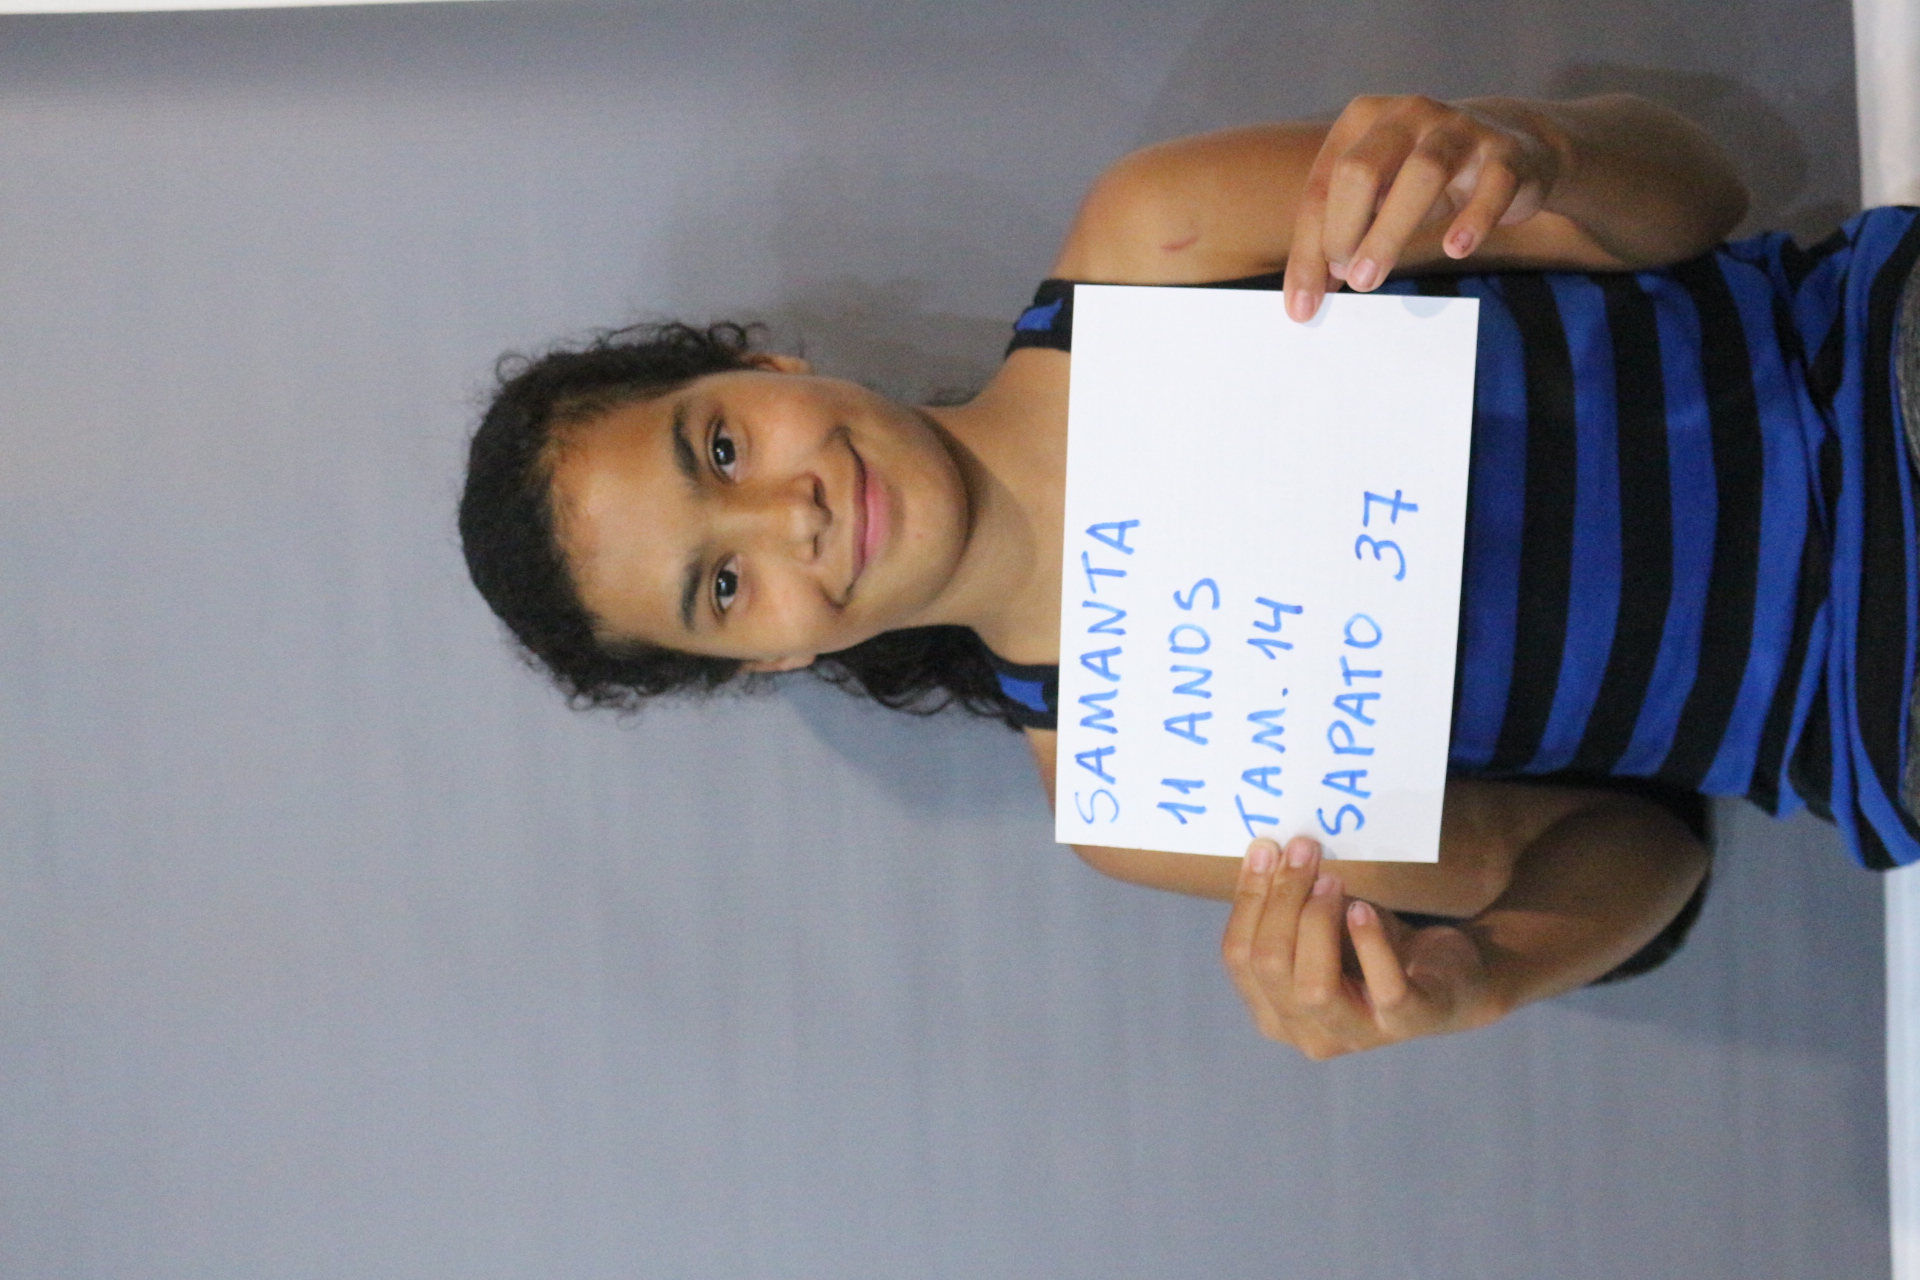 SAMANTA
11 ANOS
TAM. 14
SAPATO 37